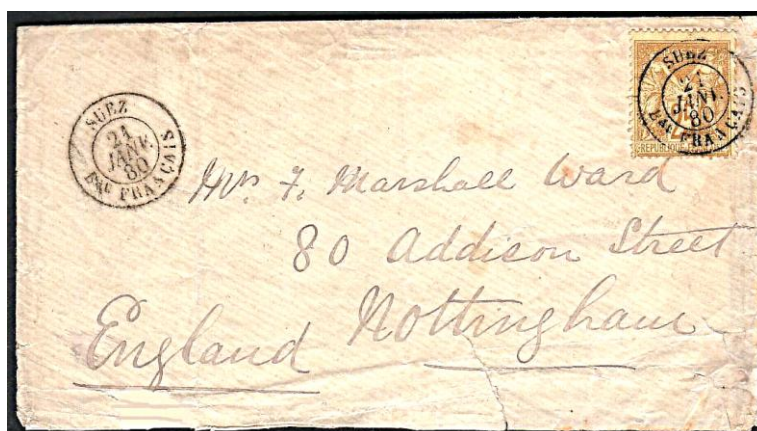 SUEZ
21
JANV.
80
Bau FRANÇAIS
SUEZ
21
JANV.
80
Bau FRANÇAIS
REPUBLIQUE
Mrs F. Marshall Ward
80 Addison Street
Nottingham
England